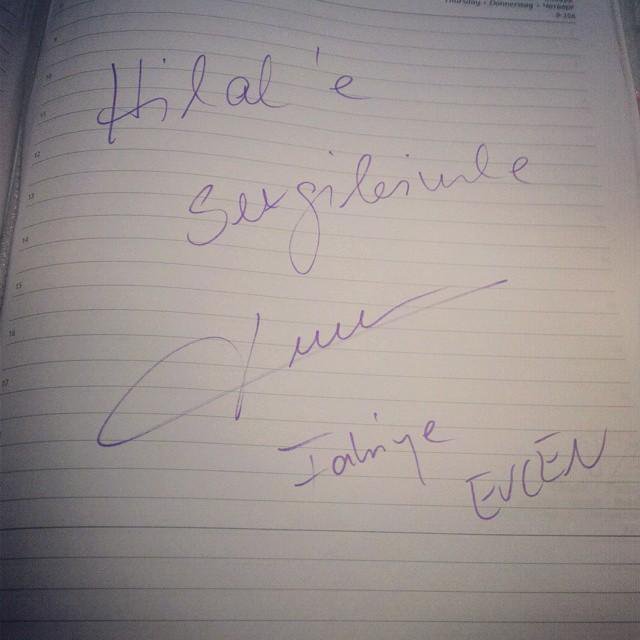 Thursday • Donnerstag • Четверг
9
10
11
12
13
14
15
16
17
Hilal'e
Sevgilerimle
Fahriye
EVCEN